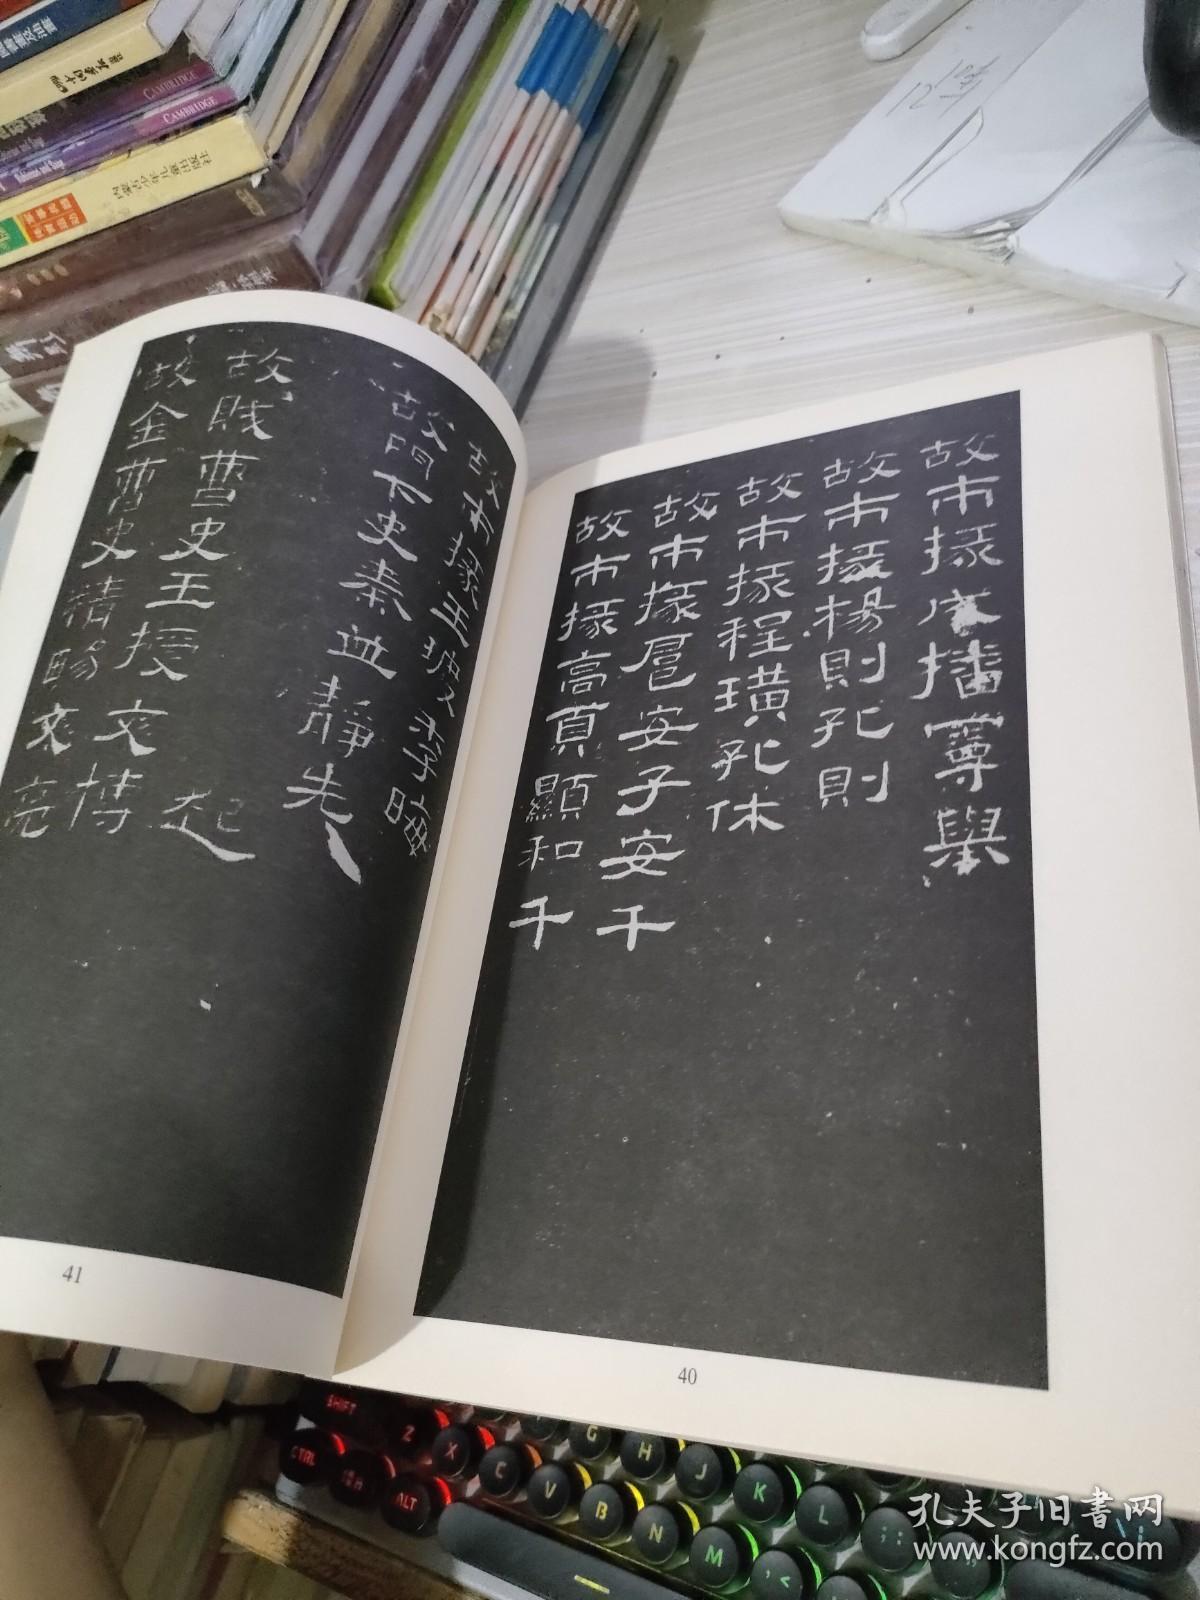 故市掾成播曼舉
故市掾楊則孔則
故市掾程璜孔休
故市掾扈安子安千
故市掾高頁顯和千
40
故市掾王玻季晦
故門下史秦並靜先
起
故賊曹史王授文博
故金曹史精暘文亮
41
CAMBRIDGE
CAMBRIDGE
内蒙古少年儿童出版社
SHIFT
Z
X
C
V
B
N
M
G
H
J
K
L
CTRL
ALT
孔夫子旧書网
www.kongfz.com